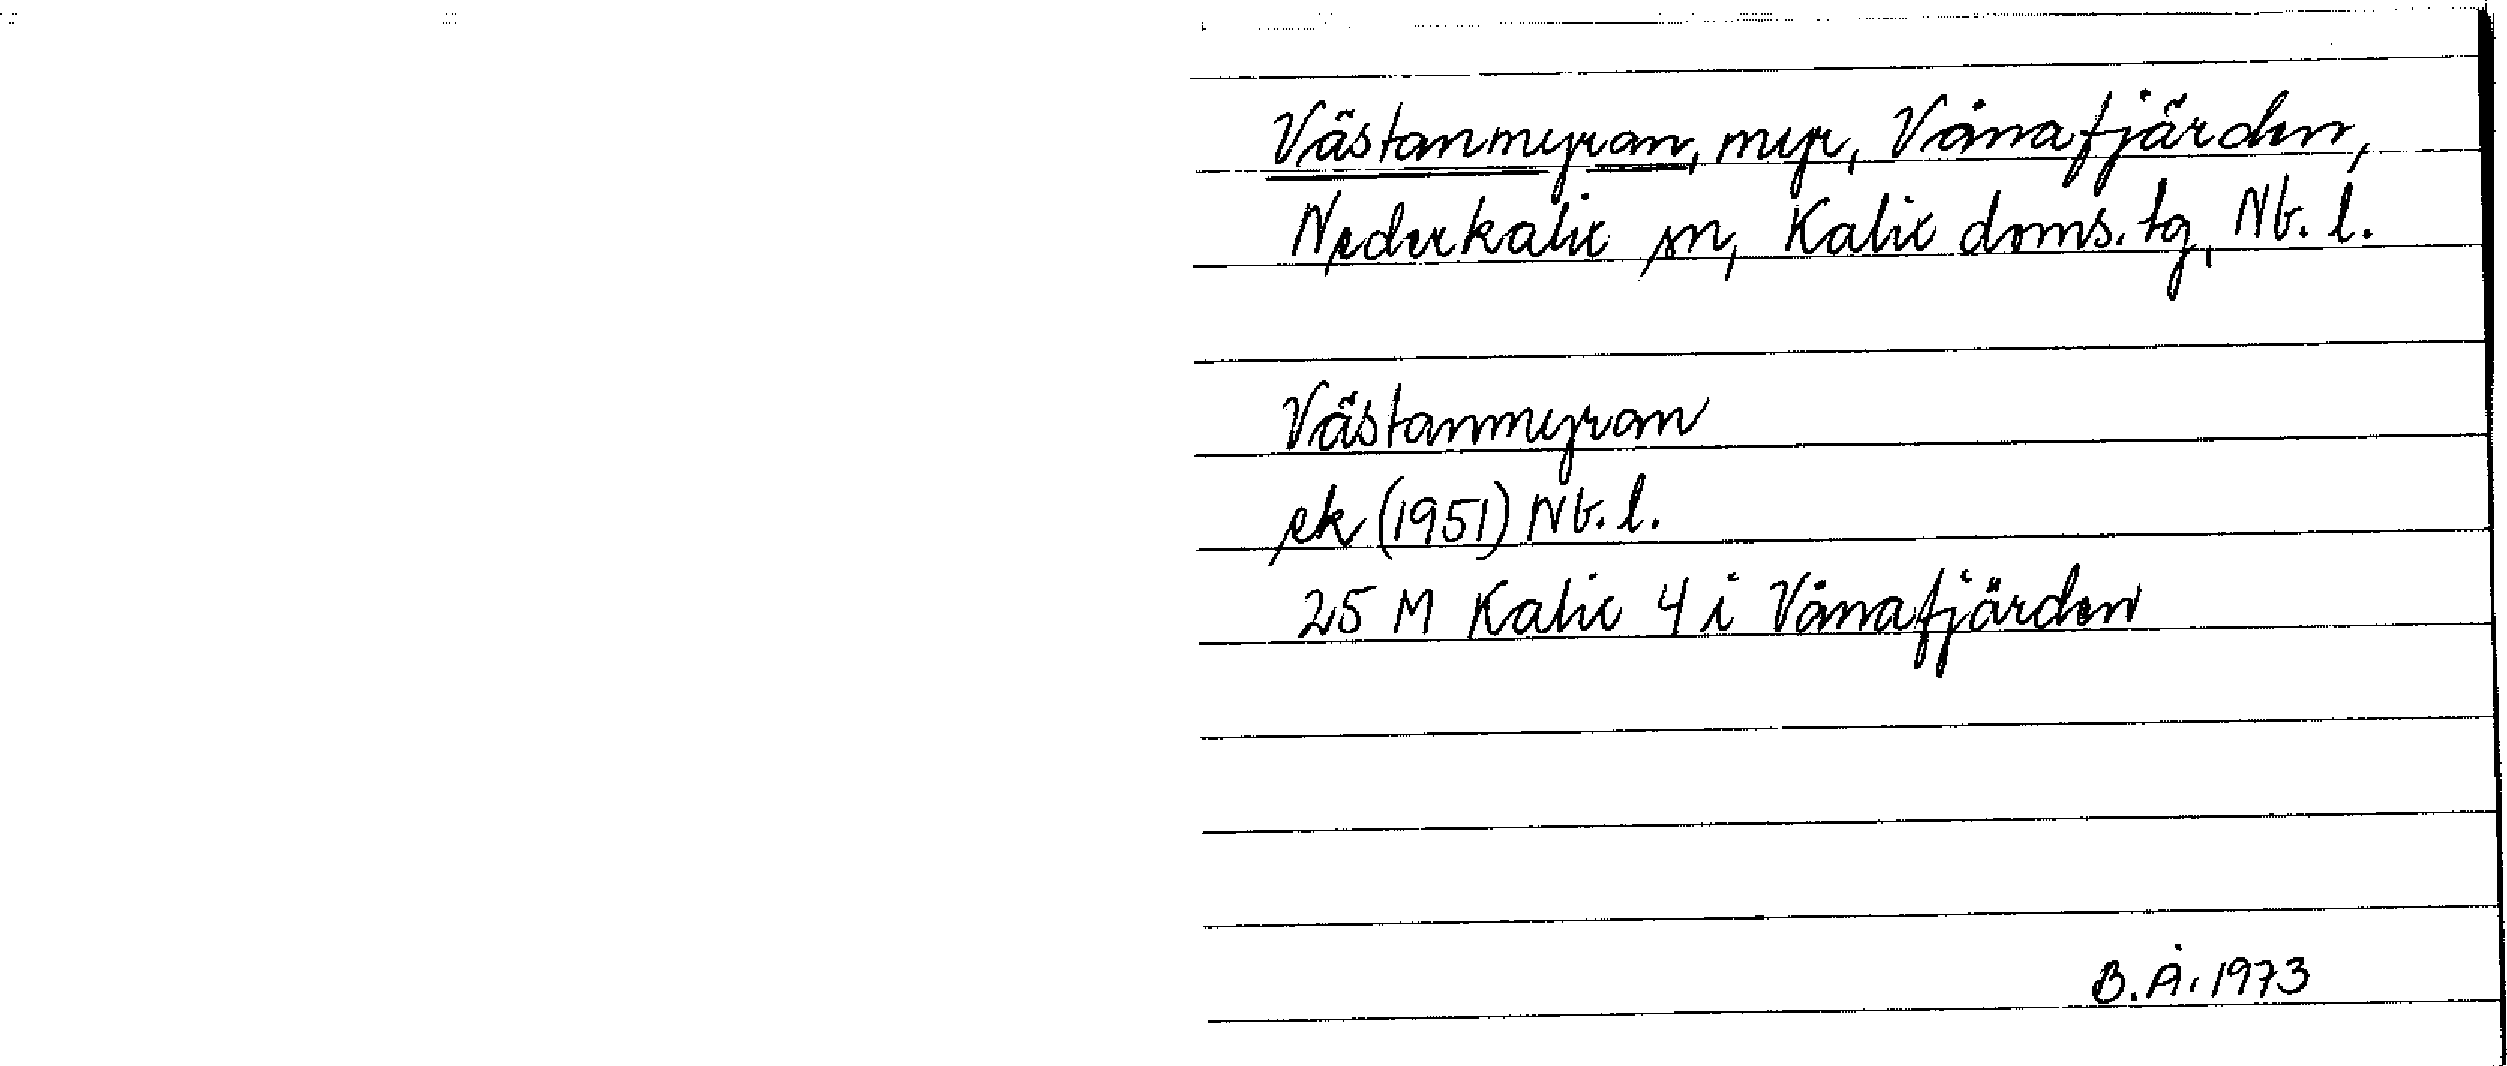 Västanmyran, myr, Vånafjärden,
Nederkalix sn, Kalix doms. tg, Nb. l.
Västanmyran
ek (1951) Nb. l.
25 M Kalix 4 i Vånafjärden
B. Å. 1973